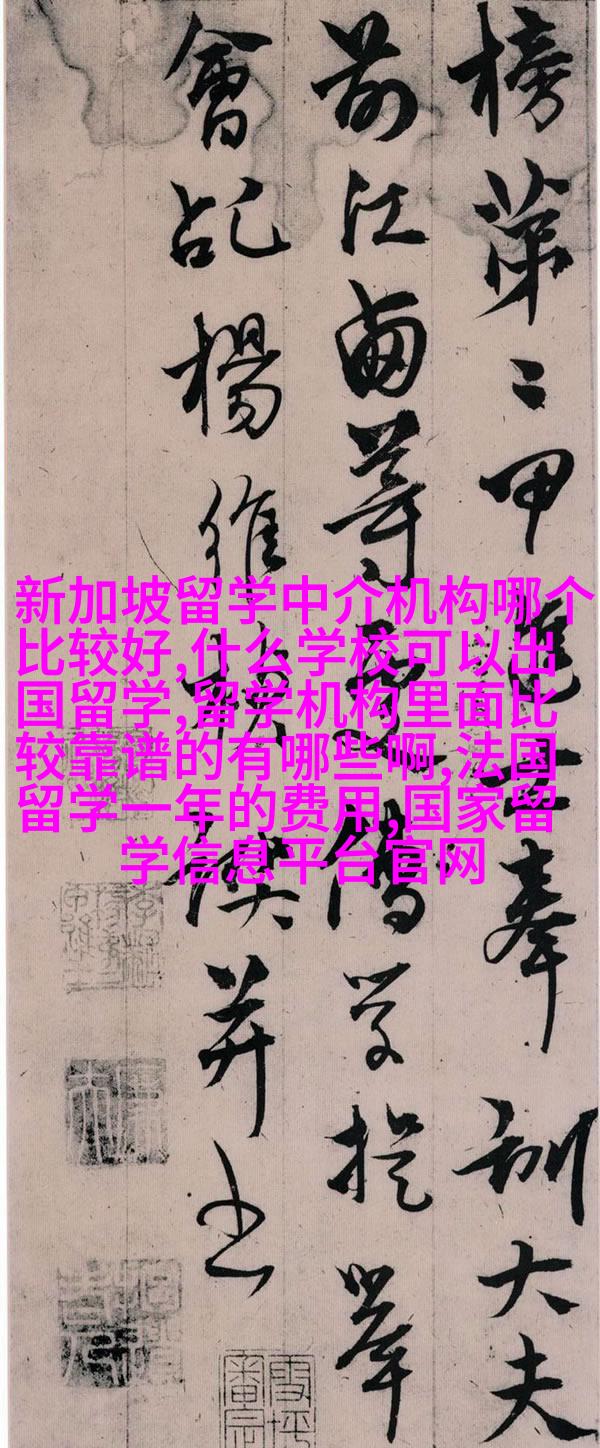 榜第二甲進士奉訓大夫
前江西等處儒學提舉
會稽楊維楨譔并書
新加坡留学中介机构哪个
比较好,什么学校可以出
国留学,留学机构里面比
较靠谱的有哪些啊,法国
留学一年的费用,国家留
学信息平台官网